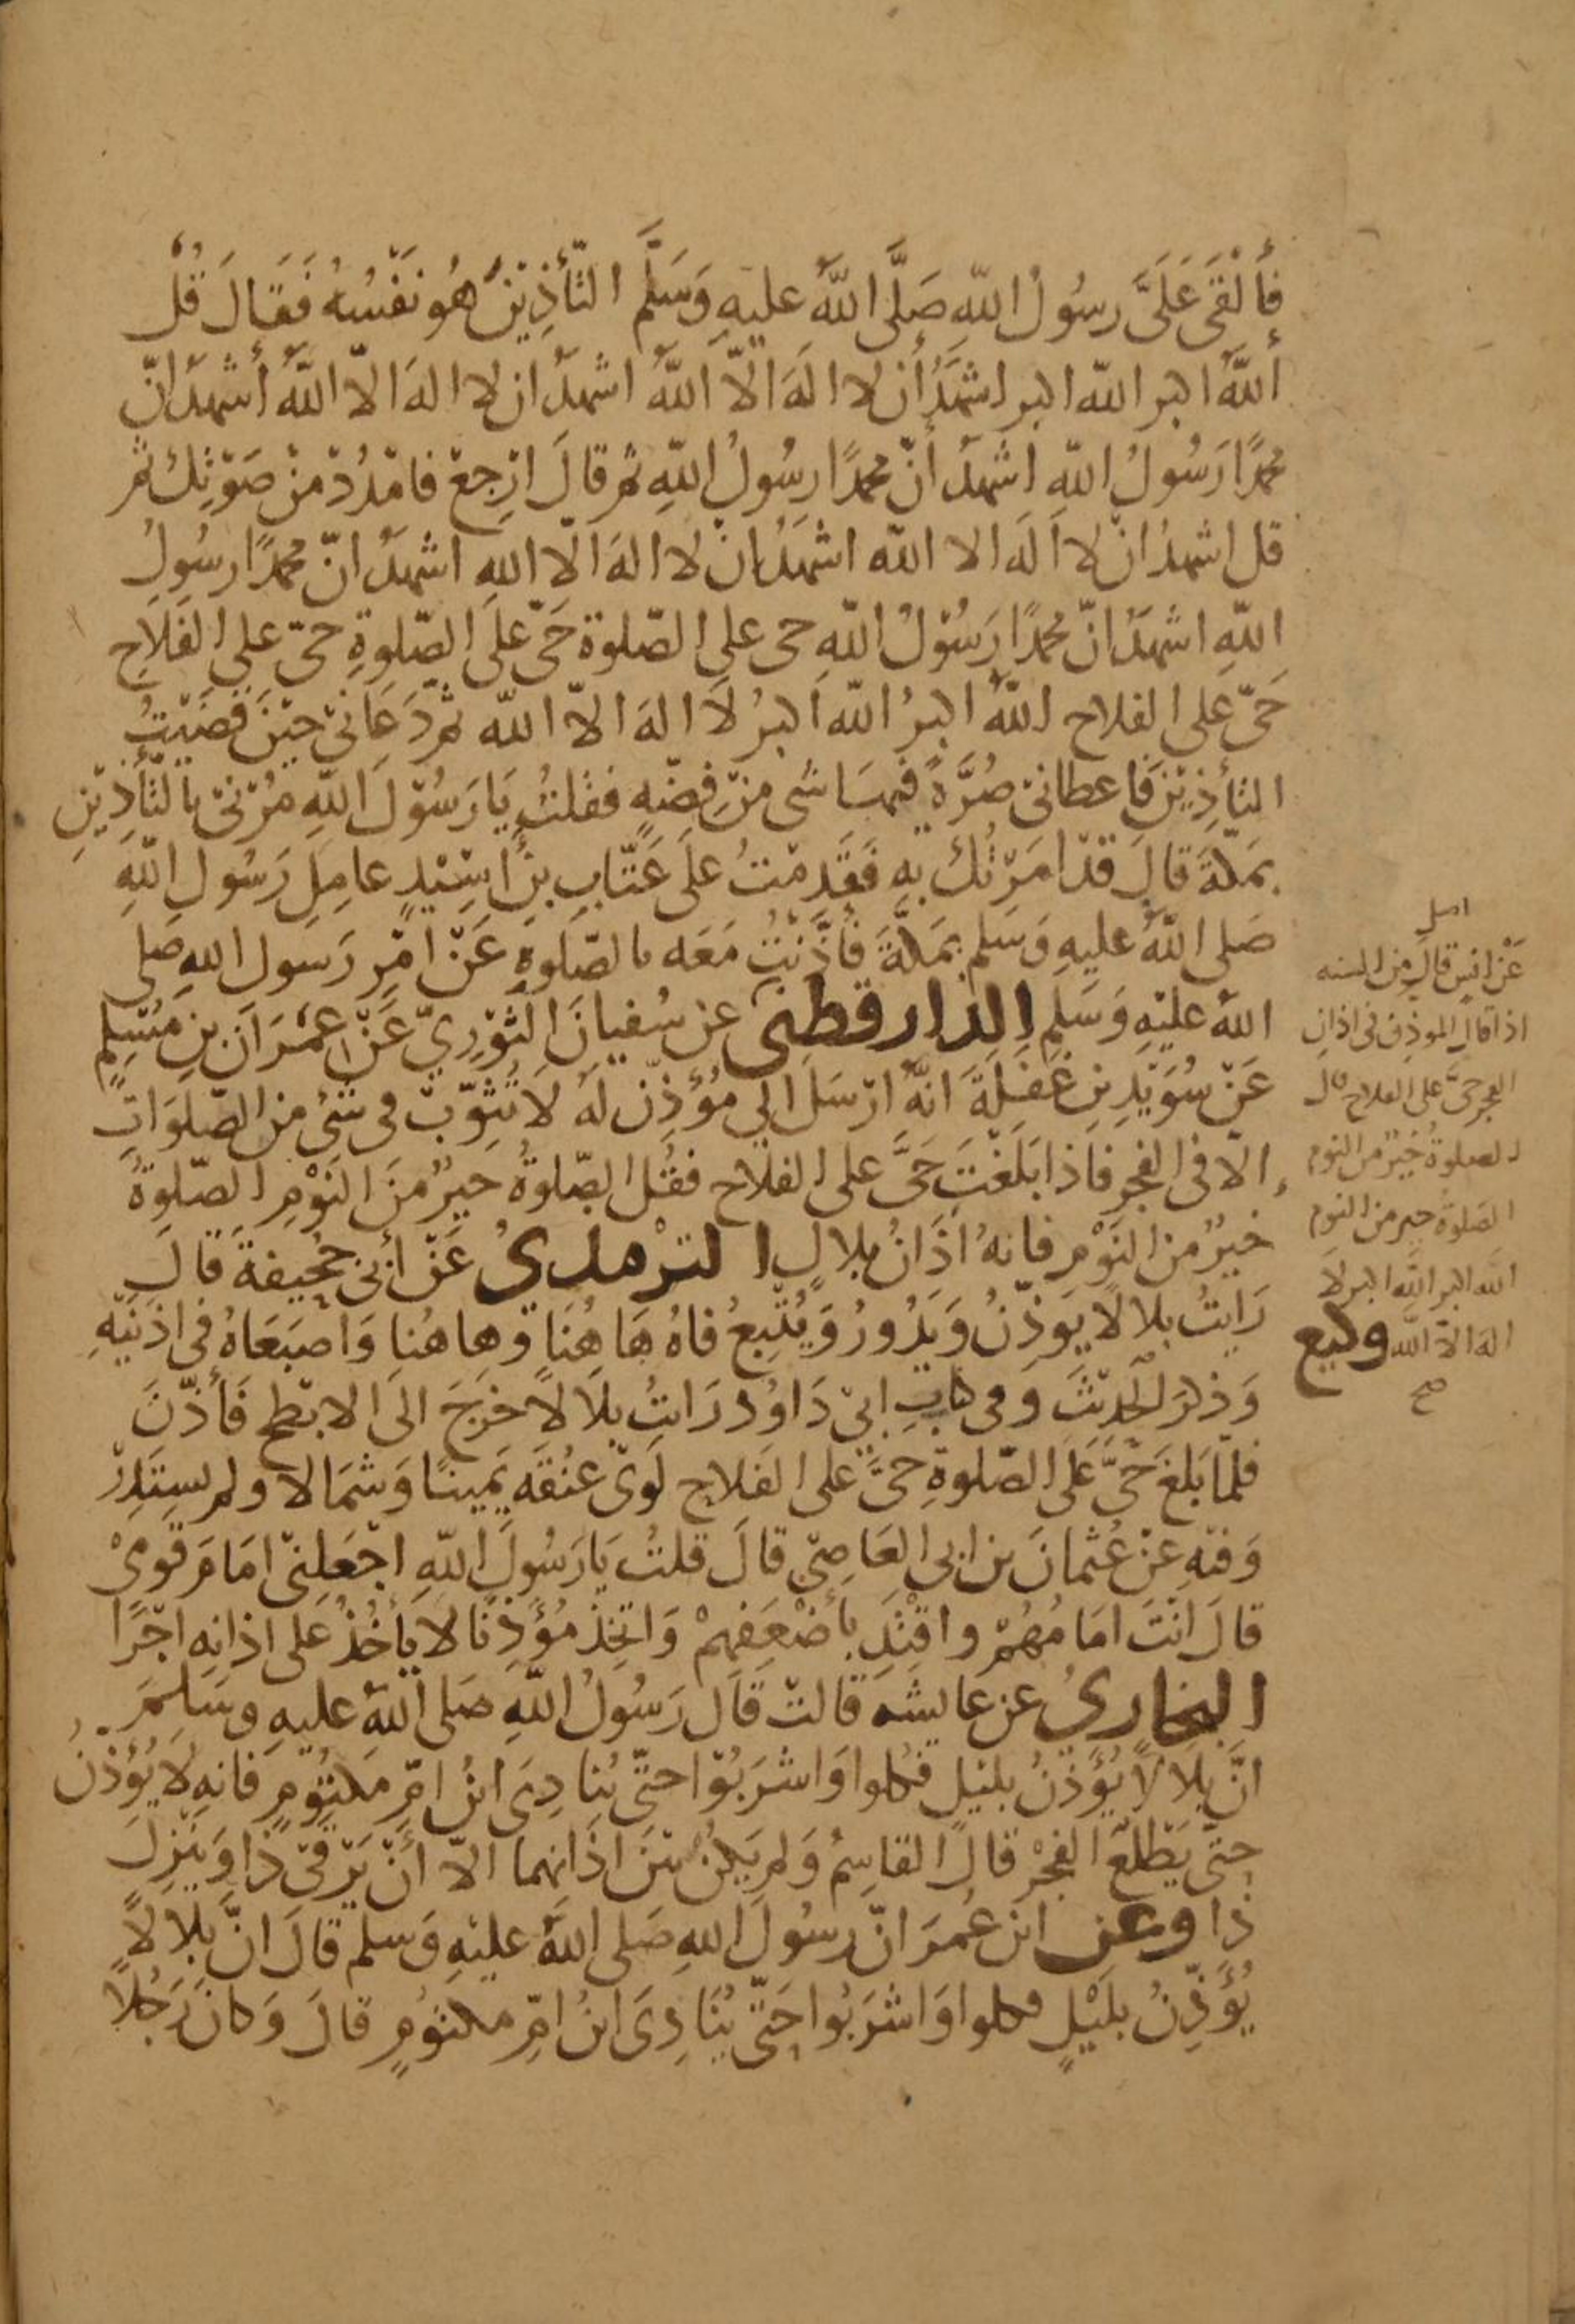 فَأَلْقَى عَلَىَّ رسُولُ اللّهِ صَلَّى اللّهُ عليهِ وَسَلَّم التَّأذِيْنَ هُو نَفْسُهُ فَقَالَ قُلْ
أللّهُ اكبر اللّه اكبر اشهَدُ أن لا الهَ الاّ اللّهُ اشهدُ ان لا الهَ الاّ اللّهُ أشهدُ انّ
محمدًا رَسُولُ اللّهِ اشهدُ أنّ محمدًا رسُولُ اللّهِ ثم قالَ ارْجِعْ فامْدُدْ مِنْ صَوْتِكَ ثم
قل اشهدُ انْ لا اله الا اللّه اشهدُ انْ لا الهَ الا اللهِ اشهدُ انّ محمدًا رسُولُ
اللّهِ اشهدُ انّ محمدًا رَسُوْلُ اللّهِ حى على الصّلوة حَىّ عَلَى الصّلوةِ حىّ على الفَلاحِ
حَىّ على الفلاح اللّهُ اكبرُ اللّه اكبرُ لاَ الهَ الاّ اللّه ثم دَعَانِيْ حِيْنَ قَضَيْتُ
التأذِيْنَ فَاعطانِيْ صُرَّةً فيهَا شى مِنْ فِضّهٍ فقلتُ يَا رَسُوْلَ اللّهِ مُرْنِيْ بالتَّأذِيْنِ
بمَكّةَ قالَ قدْ امَرْتُكَ بهِ فَقَدِمْتُ عَلى عَتّابِ بنِ اَسِيْدٍ عامِلِ رَسُولِ اللّهِ
صَلى اللّهُ عليهِ وَسَلم بمَكَّةَ فَأَذَّنْتُ مَعَه بالصّلوةِ عَنْ امْرِ رَسَول اللهِ صَلى
اللهُ عليْهِ وَسَلم الدار قطنى عن سُفيانَ الثوْرِيّ عَنْ عِمْرَانَ بنِ مُسْلِمٍ
عَنْ سُوَيْدِ بنِ غَفَلَةَ انّهُ ارْسَلَ الي مُؤذِّن لَهُ لاَ تُثوّبْ فى شئ من الصّلوَاتِ
الاّ فى الفجر فاذا بَلَغْتَ حَىَّ على الفلاح فقُل الصّلوةُ خيرٌ منَ النَوْمِ الصّلوةُ
خيرٌ من النَوْم فانهُ اذَانُ بلالٍ الترْمدىُ عَنْ أبى جُحَيفةَ قالَ
رَايتُ بلالاً يَوذّنُ وَيَدُورُ وَيُتْبِعُ فاهُ هَاهُنَا وهاهُنا وَاصْبَعَاهُ فى اذنيْهِ
وَذكرَ الحديْثَ وَفى كتابِ ابيْ دَاوُد رَايتُ بلاَلاً خرَجَ الَى الابْطح فَأذّنَ
فلمّا بَلغَ حَىَّ عَلَى الصّلوةِ حىَّ على الفلاح لَوَىّ عنُقَه يَمينًا وَشمَالا ولم يستَدِرْ
وَفيْهِ عنْ عُثمانَ بن ابى العَاصِىْ قالَ قلتُ يَا رَسُولَ اللّهِ اجْعَلِنىْ امَامَ قومِىْ
قالَ انْتَ امَامُهُمْ واقْتَدِ بأضْعَفِهمْ وَاتّخِذْ مُؤَذِّنًا لا يأخُذُ عَلى اذانِه اجْرًا
البخارىُ عن عَايشه قالتْ قَال رَسُولُ اللّهِ صَلى اللّهُ عليهِ وسَلمَ
انَّ بلاَلاً يُؤَذّنُ بليْلٍ فكلوا وَاشْرَبُوْا حتّى يُنادِىَ ابْنُ امِّ مكتُوْمٍ فانهِ لاَ يُؤذّنُ
حتّى يَطْلعَ الفجْرُ قالَ القاسِمُ وَلم يَكُنْ بيْنَ اذَانِهما الاّ أنْ يَرْقىْ ذَا وَيَنْزلَ
ذَا وعن ابْنِ عُمَرَ انّ رسُولَ اللهِ صَلى اللّهُ عليْهِ وَسلم قالَ انَّ بلالاً
يُؤَذّنُ بليْلٍ فكلوا وَاشرَبُوا حَتّى يُنَادِىَ ابنُ امِّ مكتومٍ قالَ وَكانَ رَجُلاً
اصل
عَنْ انسٍ قالَ من السنه
اذا قالَ الموذن فى اذانِ
الفجر حىَّ على الفلاح قال
الصلوةُ خَيْرٌ من النوم
الصَلوة خير من النوم
اللّه اكبر اللّه اكبر لا
الهَ الاّ اللّه وكيع
صح